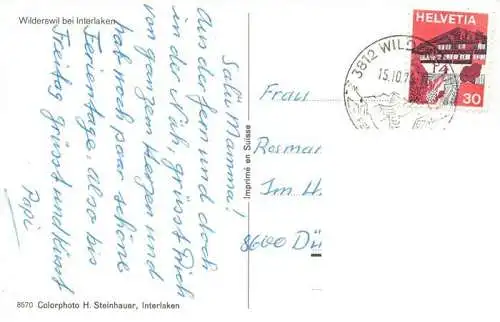 Wilderswil bei Interlaken
Salü Mamma!
Aus der fern und doch
in der Näh, grüsst Dich
von ganzem Herzen und
hat noch paar schöne
Ferientage, also bis
Freitag grüsst und küsst
Papi
8570 Colorphoto H. Steinhauer, Interlaken
Imprimé en Suisse
HELVETIA
30
3812 WILD
15.10.7
Frau
Rosmar
Im H
8600 Dü